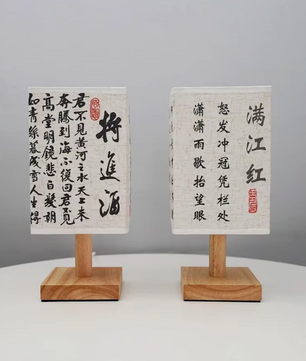 将進酒
君不見黃河之水天上来
奔騰到海不復回君不見
高堂明鏡悲白髮朝
如青絲暮成雪人生得
满江红
怒发冲冠凭栏处
潇潇雨歇抬望眼